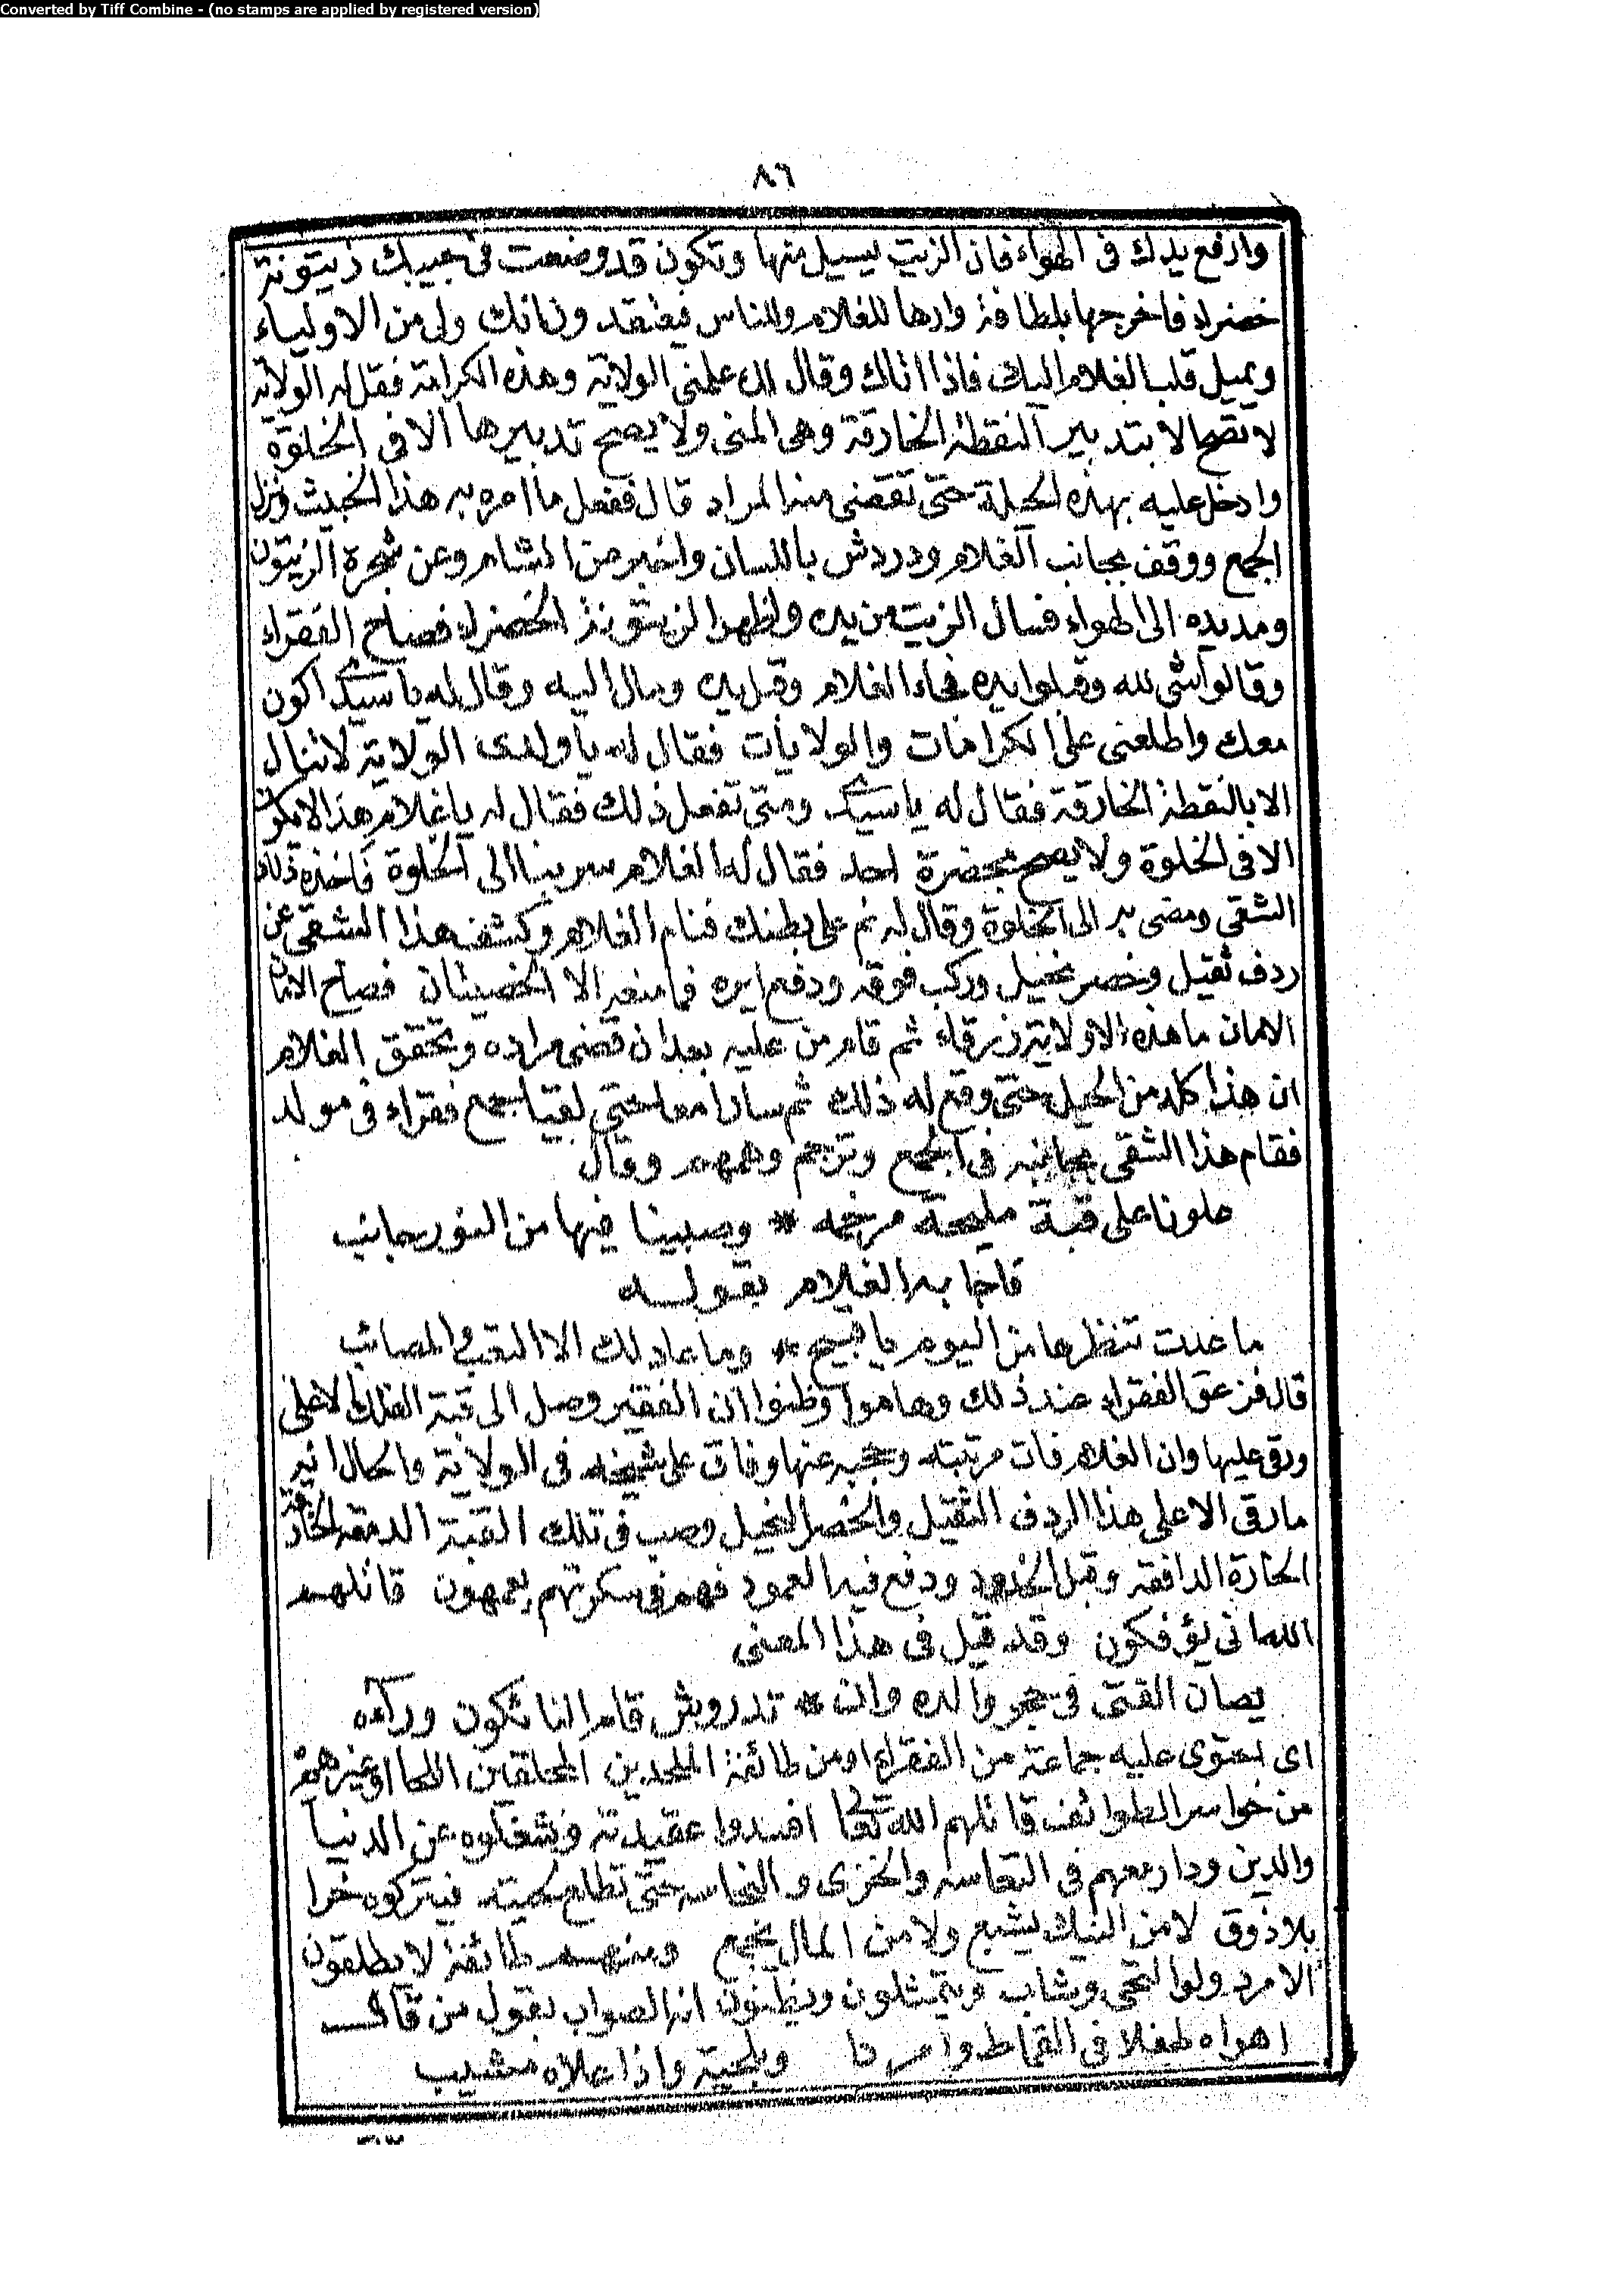 Converted by Tiff Combine - (no stamps are applied by registered version)
٨٦
وارفع يدك فى الهواء فان الزيت يسيل منها وتكون قد وضعت فى جيبك زيتونة
خضراء فاخرجها بلطافة وارها للغلام وللناس فيعتقدون انك ولى من الاولياء
ويميل قلب الغلام اليك فاذا اتاك وقال لك علمنى الولاية وهذه الكرامة فقل له الولاية
لا تصح الا بتدبير النقطة الخارقة وهى المنى ولا يصح تدبيرها الا فى الخلوة
وادخل عليه بهذه الحيلة حتى تقضى منه المراد قال ففعل ما امره به هذا الخبيث ونزل
الجمع ووقف بجانب الغلام ودردش باللسان واخبر عن الشام وعن شجرة الزيتون
ومد يده الى الهواء فسال الزيت من يده واظهر الزيتونة الخضراء فصاح الفقراء
وقالوا شى لله وقبلوا يده فجاء الغلام وقبل يده ومال اليه وقال له يا سيدى اكون
معك واطلعنى على الكرامات والولايات فقال له يا ولدى الولاية لا تنال
الا بالنقطة الخارقة فقال له يا سيدى ومتى تفعل ذلك فقال له يا غلام هذا لا يكون
الا فى الخلوة ولا يصح بحضرة احد فقال له الغلام سر بنا الى الخلوة فاخذه ذلك
الشقى ومضى به الى الخلوة وقال له نم على بطنك فنام الغلام وكشف هذا الشقى عن
ردف ثقيل وخصر نحيل وركب فوقه ودفع ايره فما منعه الا الخصيتان فصاح الامان
الامان ما هذه الا ولاية زرقاء ثم قام من عليه بعد ان قضى مراده وتحقق الغلام
ان هذا كله من الحيل حتى وقع له ذلك ثم سارا معا حتى لقيا جمع فقراء فى مولد
فقام هذا الشقى بجانبه فى الجمع وترجم وهمهم وقال
علونا على قبة مليحة مرخمه * وصبينا فيها من النور جانب
فاجابه الغلام بقوله
ما عدت تنظرها من اليوم يا قبيح * وما عاد لك الا التعب والمصائب
قال فزعق الفقراء عند ذلك وهاموا وظنوا ان الفقير وصل الى قبة الفلك الاعلى
ورقى عليها وان الغلام فات مرتبته وحجبه عنها وفاق على شيخه فى الولاية والحال انه
ما رقى الا على هذا الردف الثقيل والخصر النحيل وصب فى تلك القبة الدمعة الخارقة
الحارة الدافقة وقبل الخدود ودفع فيه العمود فهم فى سكرتهم يعمهون قاتلهم
الله انى يؤفكون وقد قيل فى هذا المعنى
يصان الفتى فى حجر والده وان * تدروش قام الناتكون ورآءه
اى احتوى عليه جماعة من الفقراء او من طائفة الملحدين المحلقين اللحا او غيرهم
من خوامس الطوائف قاتلهم الله تعالى افسدوا عقيدته وشغلوه عن الدنيا
والدين ودار معهم فى التعاسه والخزى والنحاسه حتى تطلع لحيته فيتركوه خرا
بلا ذوق لا من النيك يشبع ولا من المال يجمع ومنهم طائفة لا يطلقون
الامرد ولو التحى وشاب ويتمثلون ويظنون انه الصواب بقول من قال
اهواه طفلا فى القماط وامردا وبلحية واذا علاه مشيب